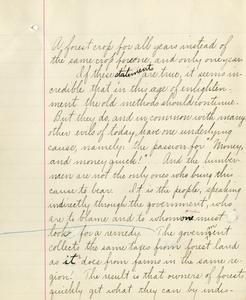 A forest crop for all years instead of
the same crop foreone, and only one year.
If these statements are true, it seems in-
credible that in this age of enlighten-
ment the old methods should continue.
But they do, and in common with many
other evils of today, have one underlying
cause, namely: the passion for "Money,
and money quick!" And the lumber-
men are not the only ones who bring this
cause to bear. It is the people, speaking
indirectly through the government, who
are to blame and to whom one must
look for a remedy. The government
collects the same taxes from forest land
as it does from farms in the same re-
gion. The result is that owners of forests
quickly get what they can by indis-